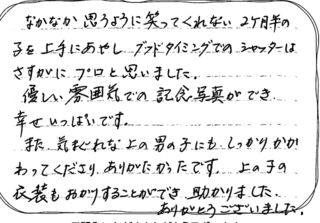 なかなか思うように笑ってくれない 2ヶ月半の
子を上手にあやし グッドタイミングでのシャッターは
さすがに プロと思いました。
優しい雰囲気での 記念写真ができ
幸せいっぱいです。
また 気まぐれな 上の男の子にも しっかりかか
わってくださり ありがたかったです。 上の子の
衣装も おかりすることができ 助かりました。
ありがとうございました。